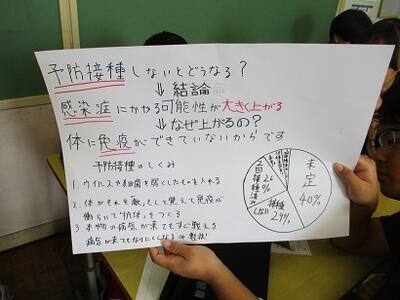 予防接種しないとどうなる?
⇓結論
感染症にかかる可能性が大きく上がる
⇓なぜ上がるの?
体に免疫ができていないからです
予防接種のしくみ
1. ウイルスや細菌を弱くしたものを入れる
2. 体がそれを敵として覚えて免疫が
働らいて「抗体」をつくる
3 本物の病気が来てもすぐ戦える
病気が来てもなりにくくなる
未定
40%
接種
24%
2回